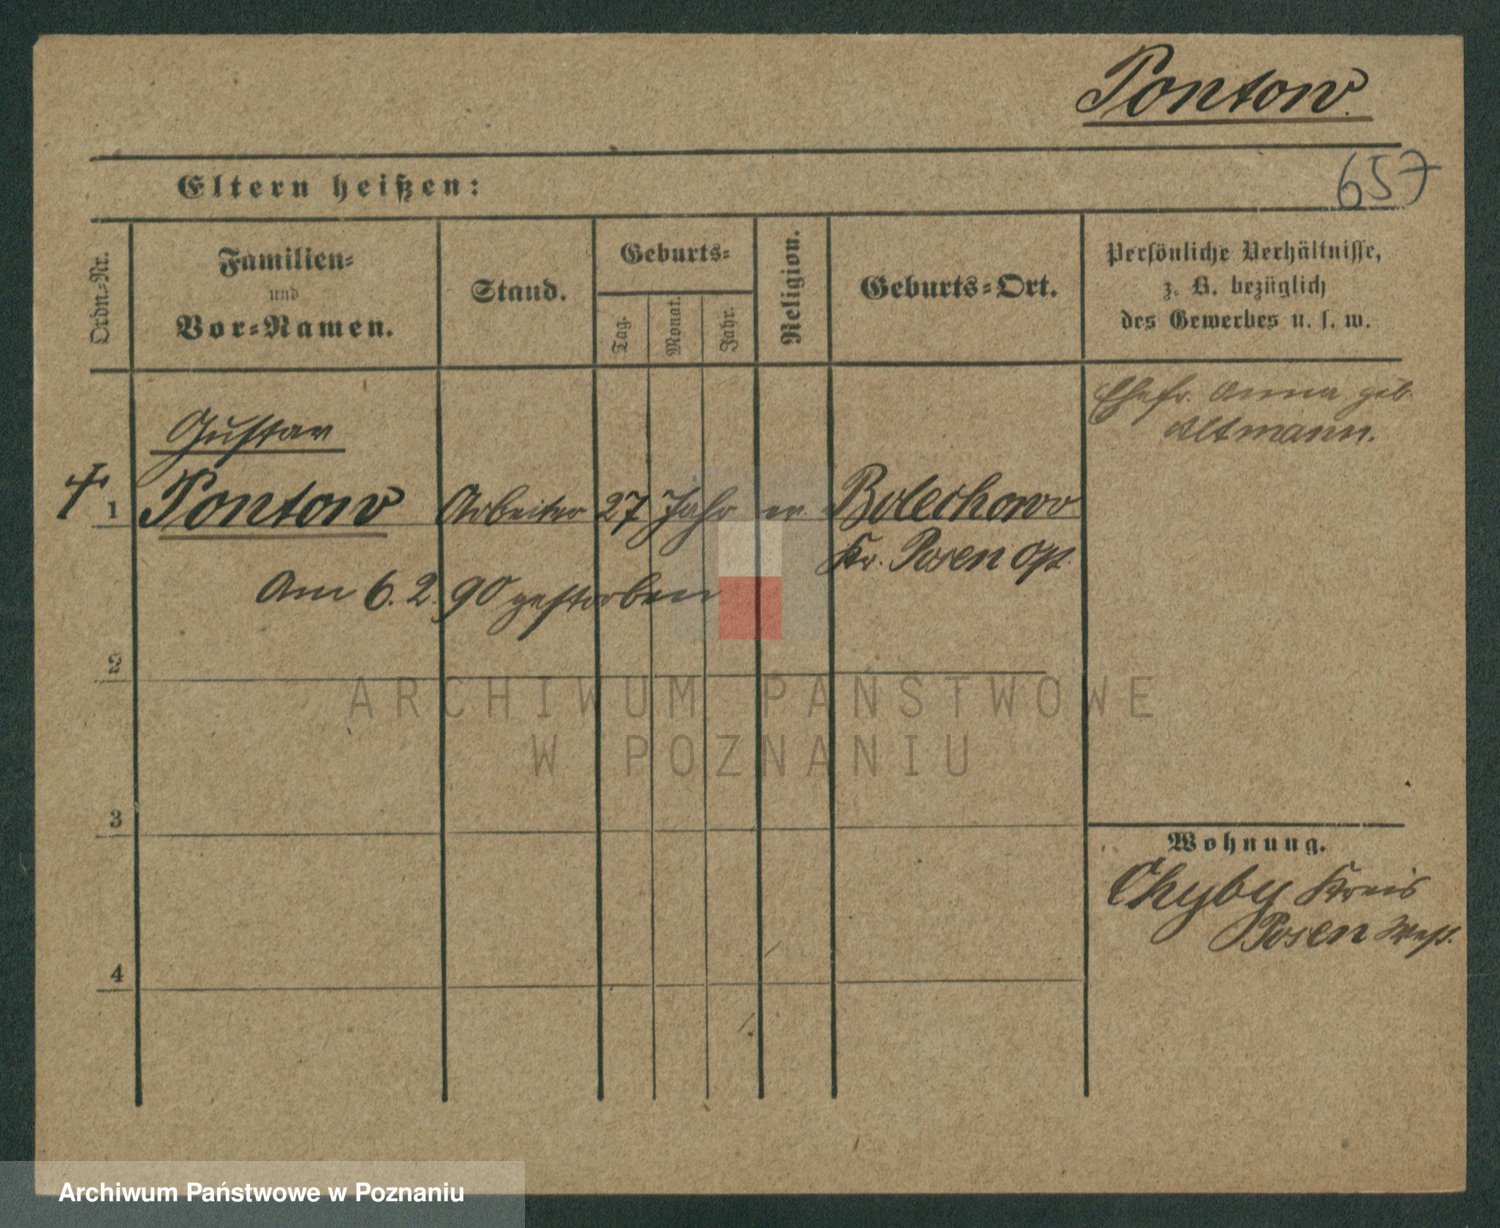 Pontow.
657
Eltern heißen:
Ordn.-Nr.
Familien-
und
Vor-Namen.
Stand.
Geburts-
Tag.
Monat.
Jahr.
Religion.
Geburts-Ort.
Persönliche Verhältnisse,
z. B. bezüglich
des Gewerbes u. s. w.
Ehefr. Anna geb.
Altmann.
Gustav
1 Pontow Arbeiter 27 Jahr ev Bolechowo
Kr. Posen Ost.
Am 6. 2. 90 gestorben
2
3
4
Wohnung.
Chyby Kreis
Posen West.
ARCHIWUM PAŃSTWOWE
W POZNANIU
Archiwum Państwowe w Poznaniu